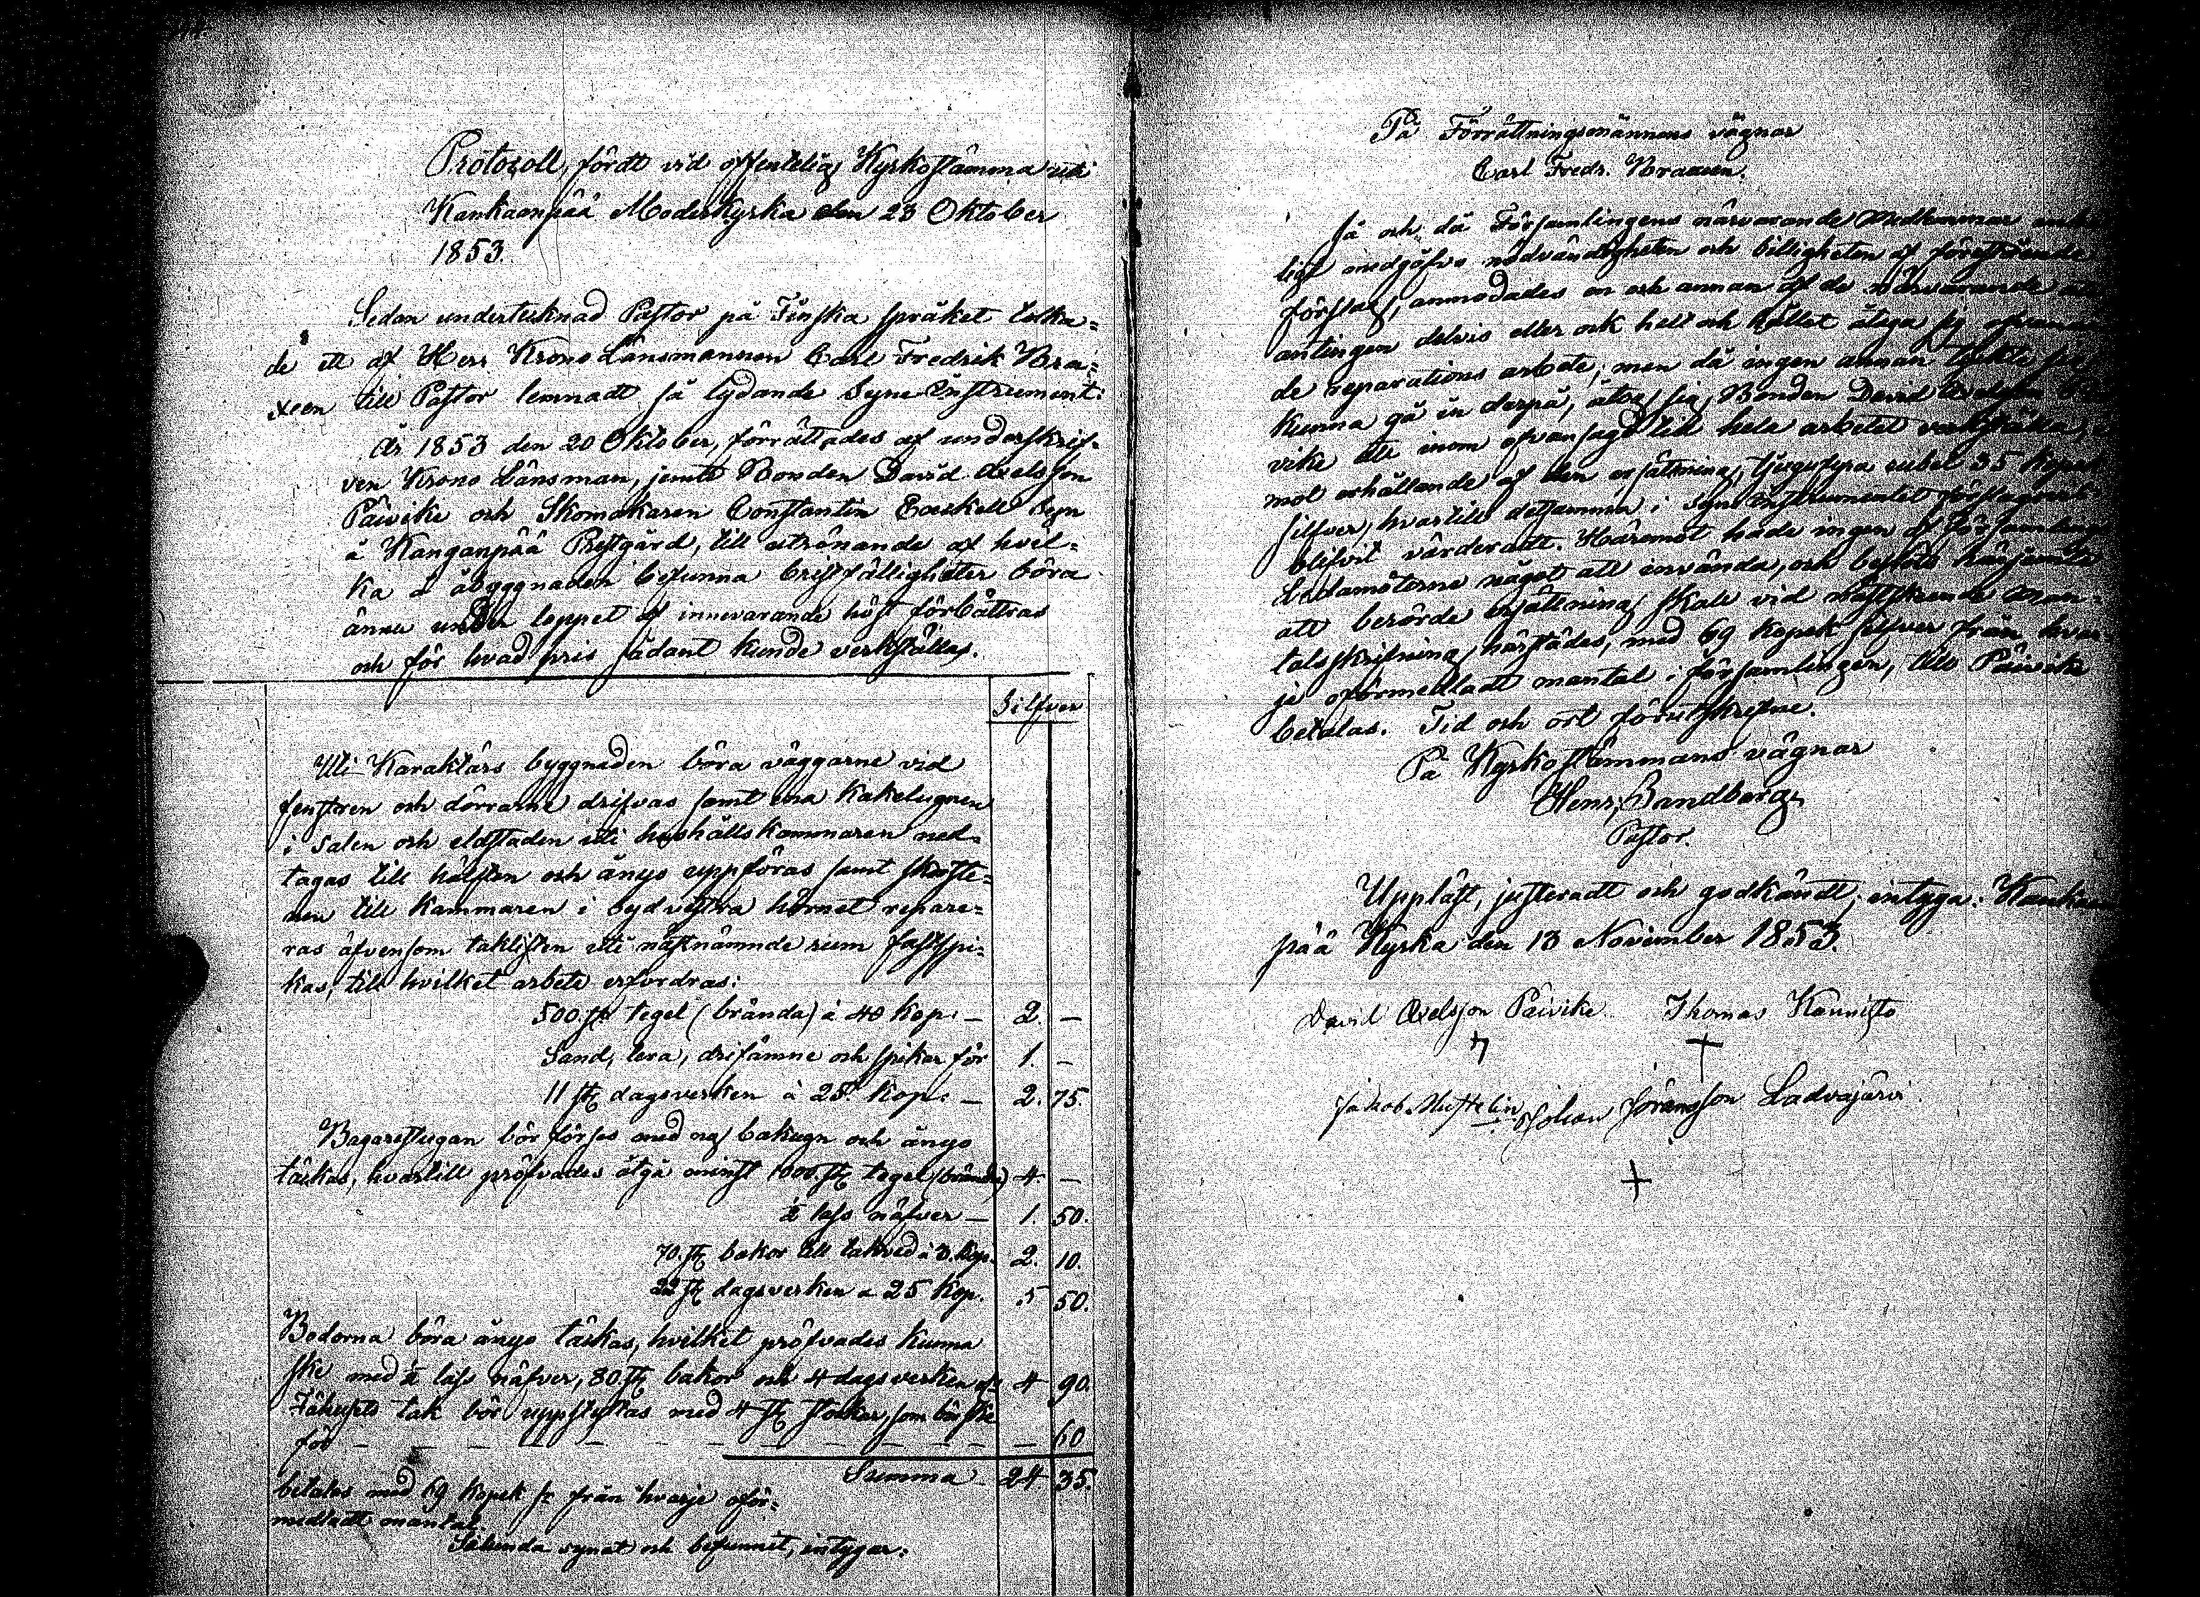 Protocoll, fördt vid offentelig Kyrkostämma uti
Kankaanpää Moderkyrka den 23 Oktober
1853.
Sedan undertecknad Pastor på Finska språket tolka-
de ett af Herr Krono Länsmannen Carl Fredrik Bra-
xeen till Pastor lemnadt så lydande Syne Instrument:
År 1853 den 20 Oktober, förrättades af underskrif-
ven Krono Länsman, jemte Bonden David Axelsson
Päivike och Skomakaren Constantin syn
å Kanganpää Prestgård, till utrönande af hvil-
ka å åbyggnaden befunna bristfälligheter böra
ännu under loppet af innevarande höst förbättras
och för hvad pris sådant kunde verkställas.
Silfver
Uti Karaktärs byggnaden böra väggarne vid
fenstren och dörrarne drifvas samt ena kakelugnen
i Salen och eldstaden uti hushållskammaren ned-
tagas till hälften och ånyo uppföras samt skorste-
nen till kammaren i sydvestra hörnet repare-
ras äfvensom taklisten uti nästnämnde rum fastspi-
kas, till hvilket arbete erfordras:
500 st tegel (brända) à 40 kop: — 2. —
Sand, lera, drifämne och spikar för 1. —
11 st dagsverken à 25 kop: — 2. 75.
Bagarestugan bör förses med ny bakugn och ånyo
täckas, hvartill pröfvades åtgå minst 1000 st tegel (brända) 4. —
½ lass näfver — 1. 50.
70 st bakor till takved à 3 kop. 2. 10.
22 st dagsverken a 25 kop. 5 50.
Bodorna böra ånyo täckas, hvilket pröfvades kunna
ske med ½ lass näfver, 80 st bakor och 4 dagsverken 4 90.
Fähusets tak bör uppstöttas med 4 st stockar, som bör ske
för — — — — — — — — — — 60
Summa 24. 35.
betalas med 69 kopek sr från hvarje oför-
medladt mantal.
Sålunda synat och befunnit, intygar:
På Förrättningsmännens vägnar
Carl Fredr. Braxeen.
Så och då Församlingens närvarande medlemmar
medgåfvo nödvändigheten och billigheten af föreståend
förslag, anmodades en och annan af de närvarande
antingen delvis eller ock helt och hållet åtaga sig
de reparations arbete; men då ingen annan tyckte sig
kunna gå in derpå, åtog sig Bonden David Axelsson
vike att inom ofvansagd tid hela arbetet verkställa,
mot erhållande af den ersättning, tjugufyra rubel 35 kopek
silfver, hvartill detsamma i Syne Instrumentet förslagsvis
blifvit värderadt. Häremot hade ingen af Församlings
Ledamöterne något att invända, och beslöts härjemte
att berörde ersättning skall vid nästskeende Man-
talsskrifning härstädes, med 69 kopek silfver från hvar-
je oförmedladt mantal i församlingen, till Päivike
betalas. Tid och ort förutskrefne.
På Kyrkostämmans vägnar
Henr. Sandberg
Pastor.
Uppläst, justeradt och godkändt; intyga: Kankaan
pää Kyrka den 13 November 1853.
David Axelsson Päivike Thomas Kannisto
Jakob Johan Göransson Ladvajärvi